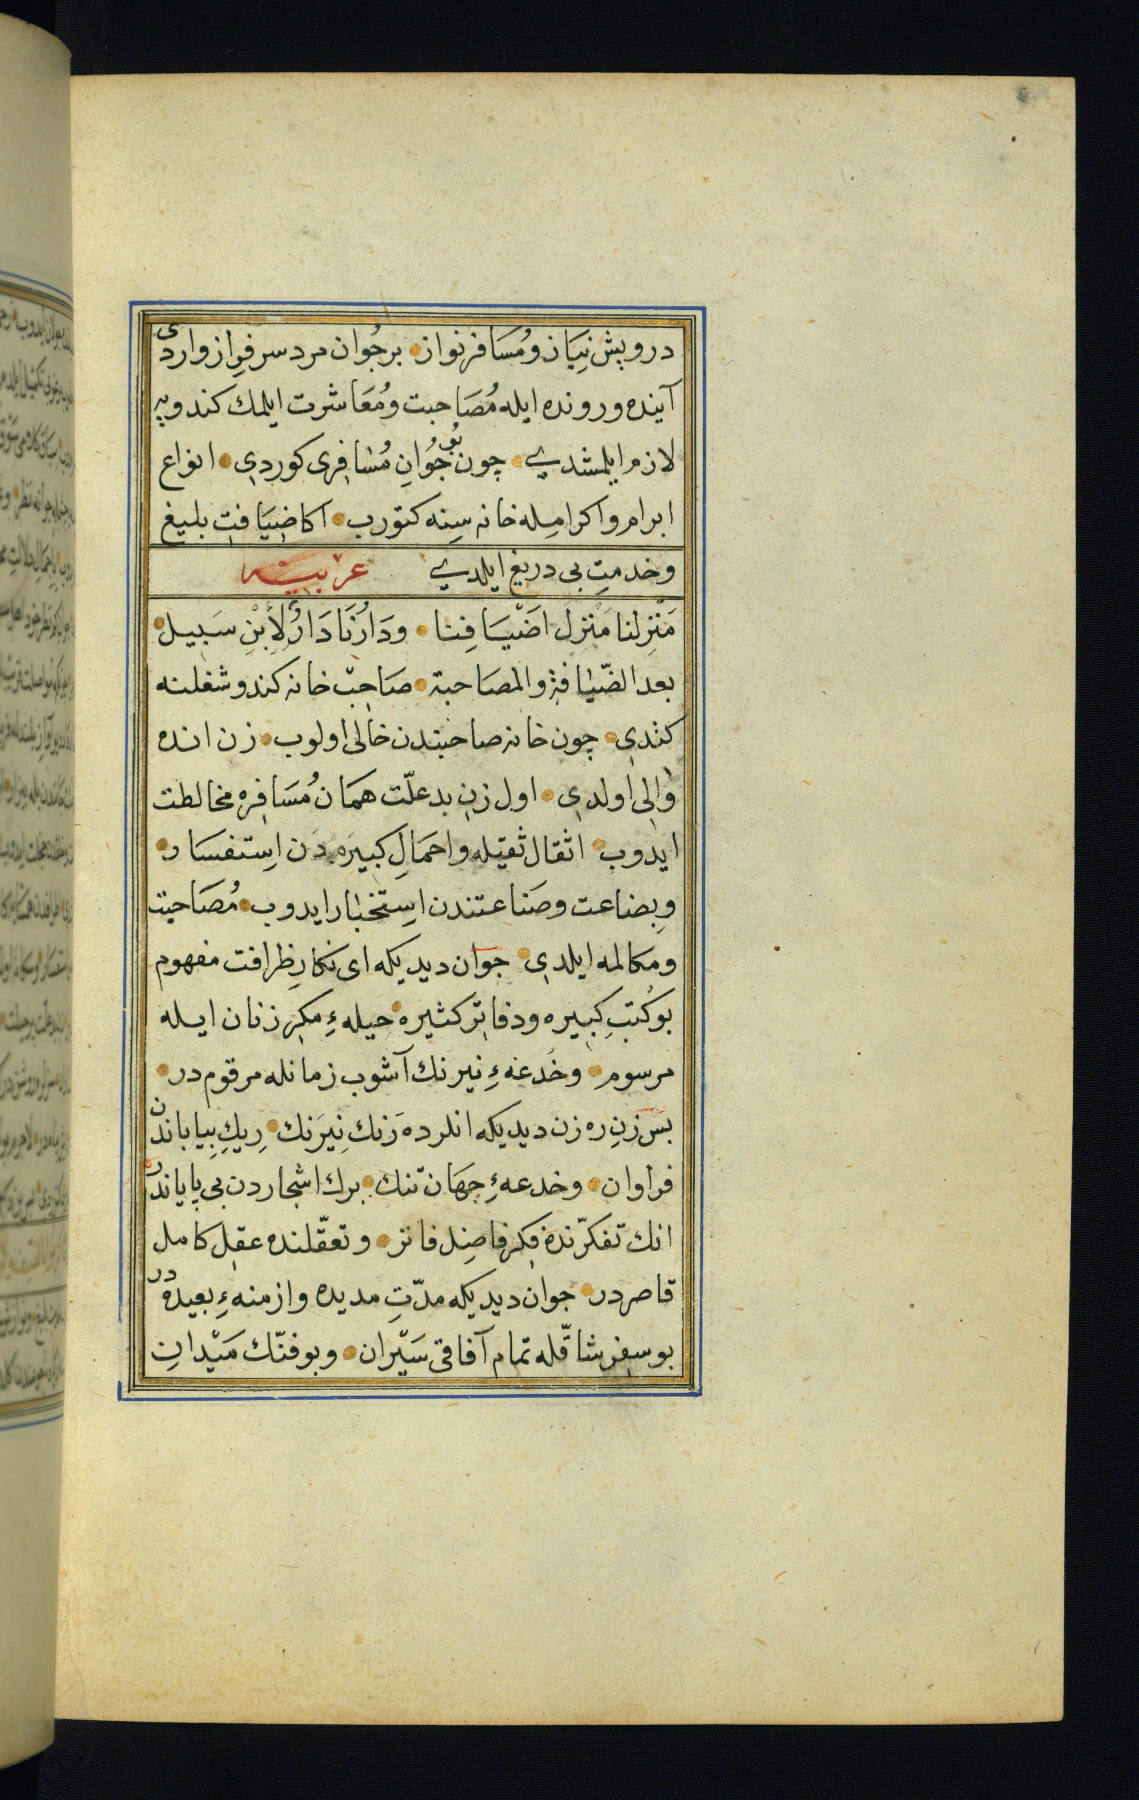 درویش نِیَاز و مُسَافرنواز برجُوان مرد سرفراز واردی
آینده ورونده ایله مُصَاحبت ومُعَاشرت ایلمك کندویه
لازم ایلمشدی چون بُو جُوانِ مُسَافِری کوردی انواع
ابرام واکرامله خانه سِنه کتورب اکا ضِیَافتِ بلیغ
وخدمتِ بی دریغ ایلدی عربیه
مَنْزِلنا مَنْزِل اَضْیَافِنا ودَارُنَا دَارٌ لأِبْنِ سَبِیل
بعد الضّیافة والمصاحبة صَاحِبْ خانه کندو شغلنه
کتدی چون خانه صاحبندن خالی اولوب زن انده
والی اولدی اول زنِ بدعلّت همَان مُسَافِره مخالطت
ایدوب اثقال ثقیله واحمَالِ کبیرَه دَن اِستفسار
وبِضاعت وصَناعتندن اِستخبار ایدوب مُصَاحبت
ومکالمه ایلدی جوان دیدیکه ای نکارِ ظرافت مفهوم
بو کُتبِ کبیره ودفاتر کثیره حیلهءِ مکرِ زنان ایله
مرسوم وخُدعهءِ نیرنك آشوب زمانله مرقوم در
بس زنِ ره زن دیدیکه انلرده رَنك نِیرَنك رِیكِ بِیاباندن
فراوان وخدعهءِ جهَان تنك برك اشجاردن بی پایاندر
انك تفکرنده فِکرِ فاضِل فاتر وتعقّلنده عقلِ کامل
قاصردر جوان دیدیکه مدّتِ مدیده وازمنهءِ بعیده در
بو سفرِ شاقّله تمام آفاقی سَیْران وبو فنّك مَیْدانِ